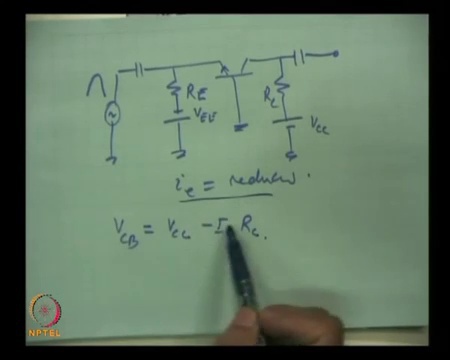 RE
VEE
RC
VCC
ie = reduces.
VCB = VCC - I RC.
NPTEL